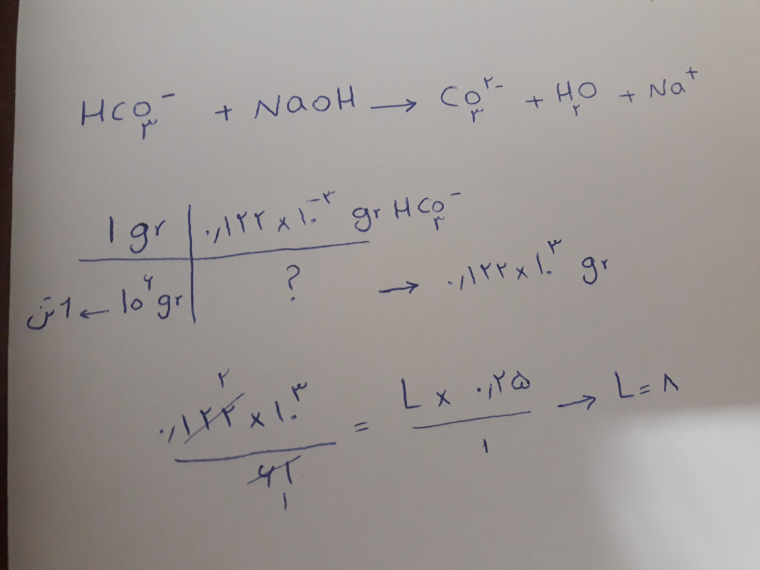 HCO₃⁻ + NaOH → CO₃²⁻ + H₂O + Na⁺
1 gr | ۰٫۱۲۲ × ۱۰⁻³ gr HCO₃⁻
۱ تن ← 10⁶ gr | ? → ۰٫۱۲۲ × ۱۰³ gr
۲
۰٫۱۲۲ × ۱۰³ / ۶۱ = L × ۰٫۲۵ / ۱ → L = ۸
۱